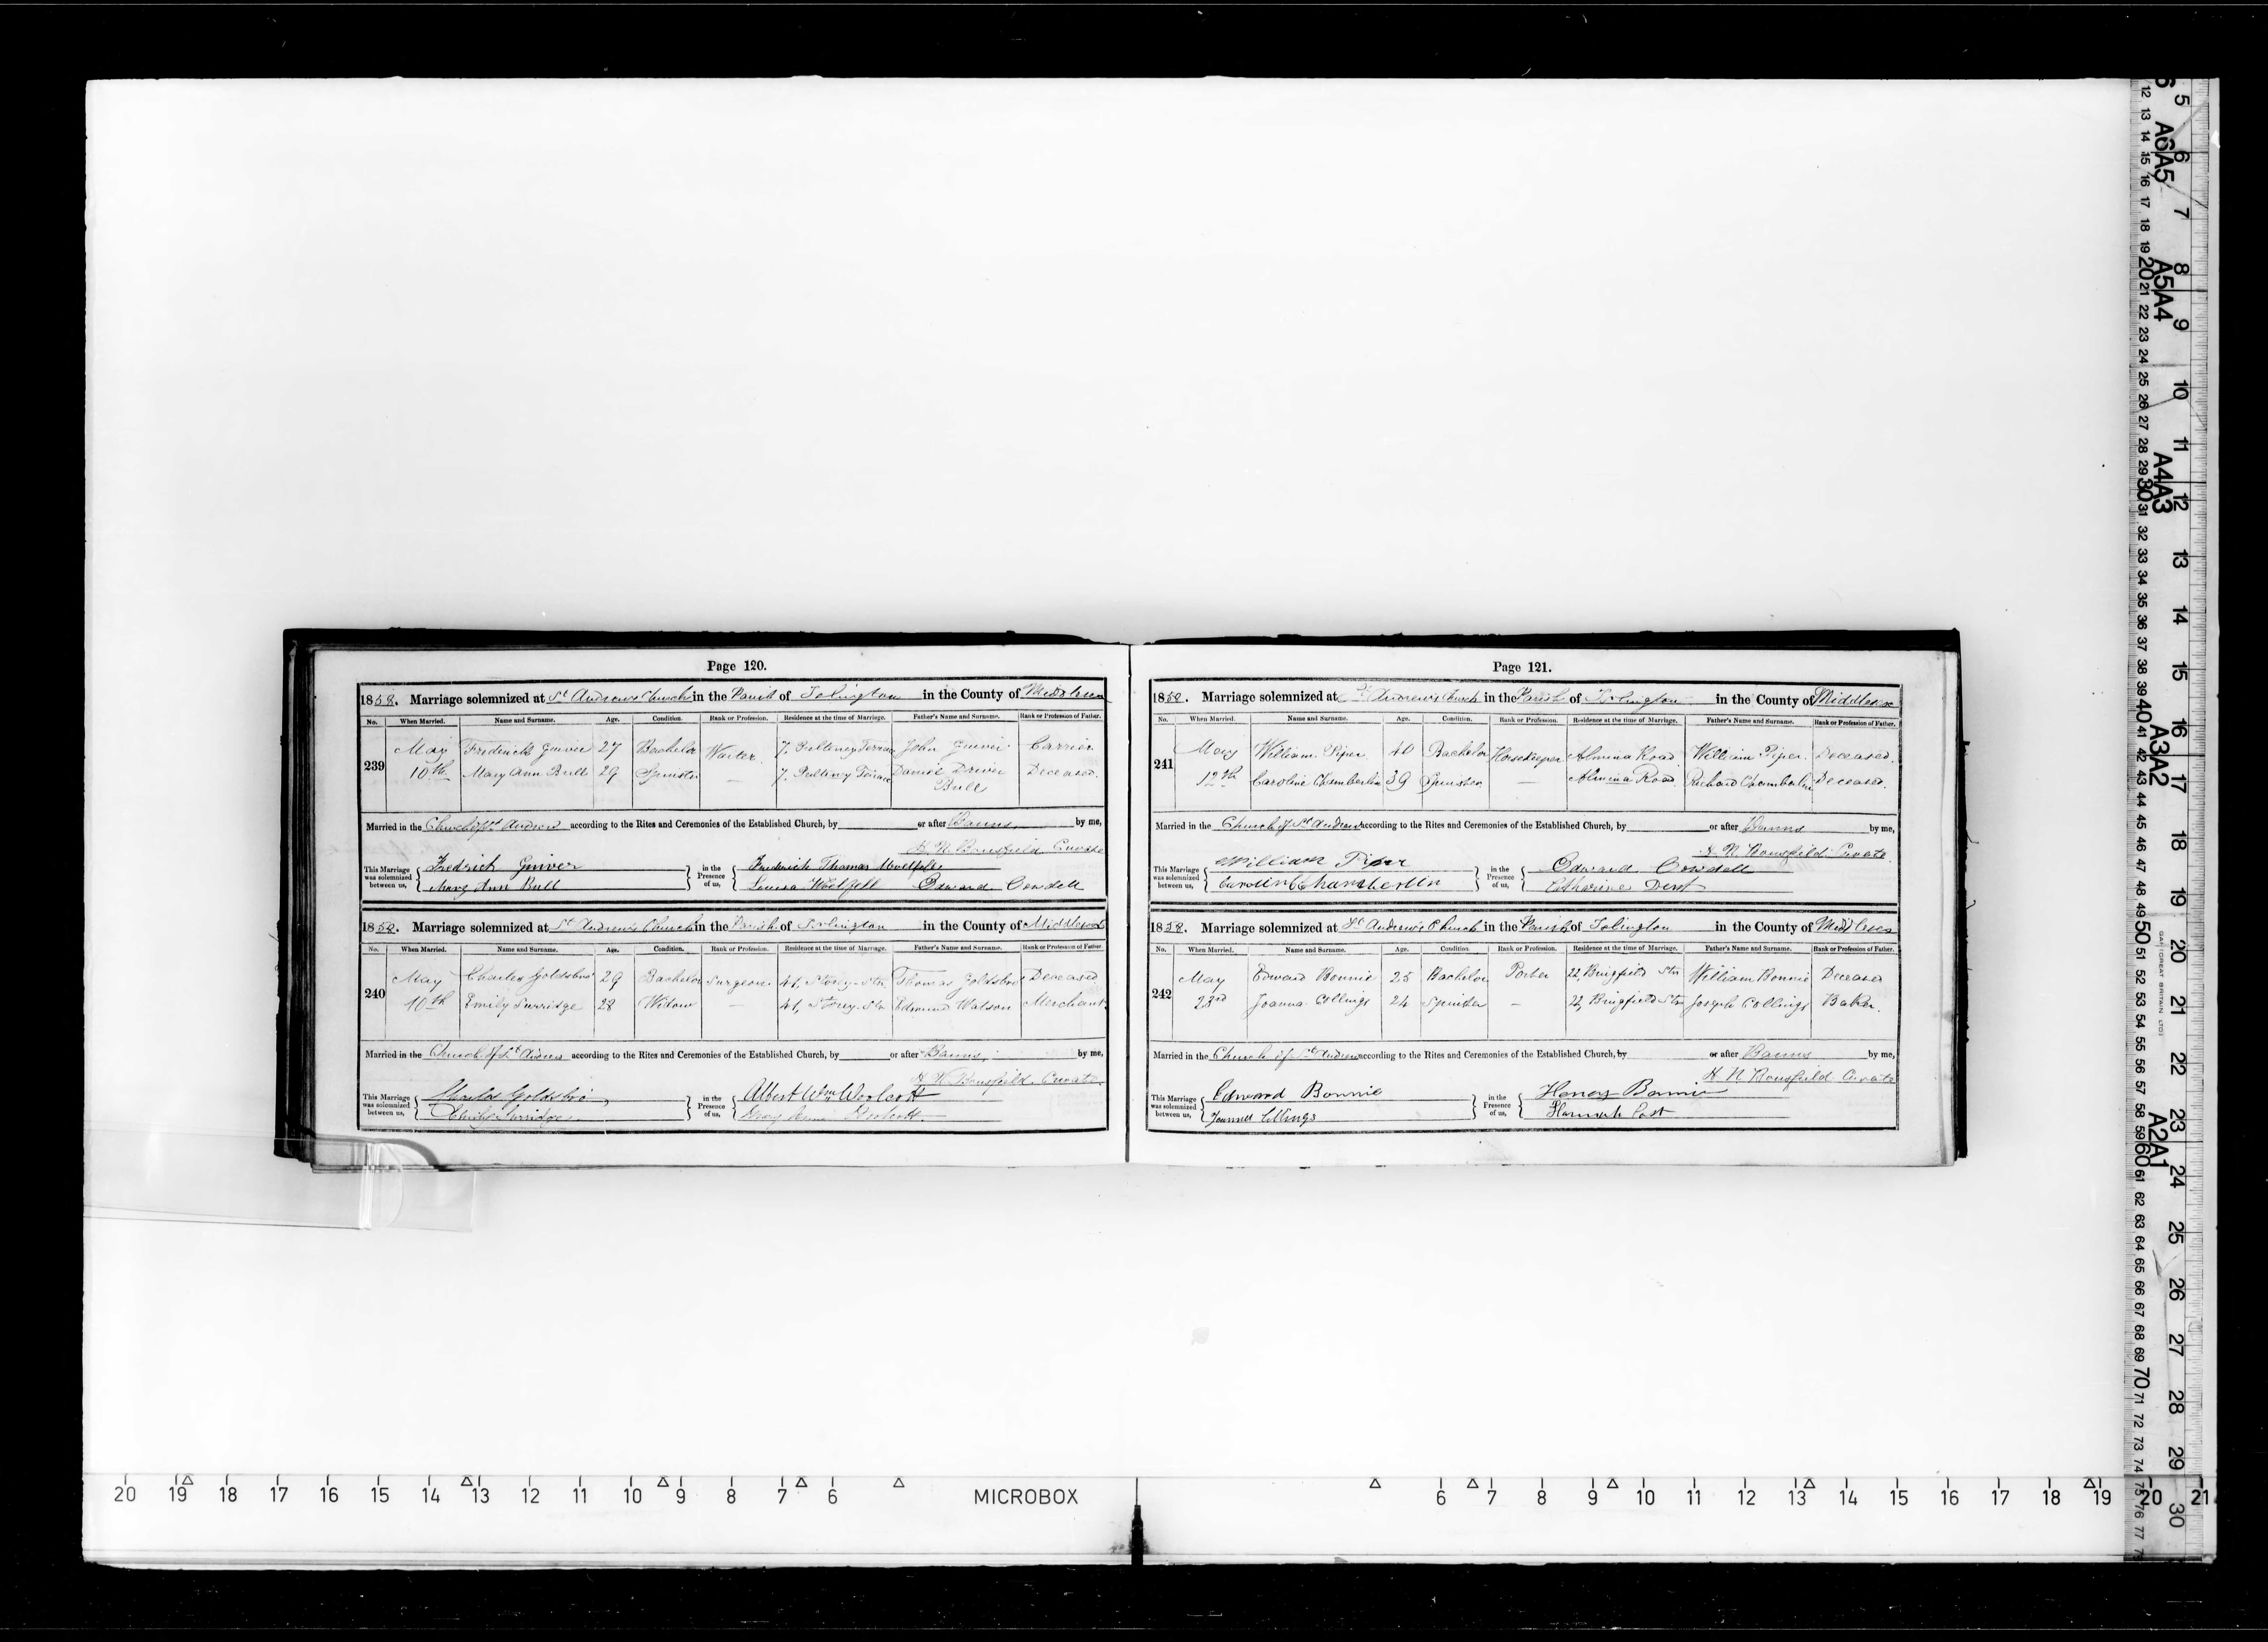 Page 120.
1858. Marriage solemnized at St Andrews Church in the Parish of Islington in the County of Middlesex
No. When Married. Name and Surname. Age. Condition. Rank or Profession. Residence at the time of Marriage. Father's Name and Surname. Rank or Profession of Father.
239 May Frederick Guiver 27 Bachelor Waiter 7. Pulteney Terrace John Guiver Carrier
10th Mary Ann Bull 29 Spinster — 7. Pulteney Terrace Daniel Driver Deceased.
Bull
Married in the Church of St Andrew according to the Rites and Ceremonies of the Established Church, by or after Banns, by me,
H. N. Bousfield Curate
This Marriage was solemnized between us, Fredrick Guiver
Mary Ann Bull
in the Presence of us, Frederick Thomas
Louisa Edward Cowdell
1858. Marriage solemnized at St Andrew's Church in the Parish of Islington in the County of Middlesex
No. When Married. Name and Surname. Age. Condition. Rank or Profession. Residence at the time of Marriage. Father's Name and Surname. Rank or Profession of Father.
240 May Charles Goldsbro' 29 Bachelor Surgeon 41, Storey Str. Thomas Goldsbro' Deceased
10th Emily Surridge 28 Widow — 41, Storey Str Edmund Watson Merchant
Married in the Church of St Andrew according to the Rites and Ceremonies of the Established Church, by or after Banns, by me,
H. N. Bousfield. Curate.
This Marriage was solemnized between us, Charles Goldsbro
Emily Surridge
in the Presence of us, Albert Wm Woolcott
Mary Woolcott
Page 121.
1858. Marriage solemnized at St Andrew's Church in the Parish of Islington in the County of Middlesex
No. When Married. Name and Surname. Age. Condition. Rank or Profession. Residence at the time of Marriage. Father's Name and Surname. Rank or Profession of Father.
241 May William Piper 40 Bachelor Horsekeeper Almina Road William Piper. Deceased.
12th Caroline Chamberlin 39 Spinster — Almina Road Richard Chamberlin Deceased.
Married in the Church of St Andrew according to the Rites and Ceremonies of the Established Church, by or after Banns by me,
H. N. Bousfield Curate
This Marriage was solemnized between us, William Piper
Carolin Chamberlin
in the Presence of us, Edward Cowdell
Catharine Dent
1858. Marriage solemnized at St Andrew's Church in the Parish of Islington in the County of Middlesex
No. When Married. Name and Surname. Age. Condition. Rank or Profession. Residence at the time of Marriage. Father's Name and Surname. Rank or Profession of Father.
242 May Edward Bonnie 25 Bachelor Porter 22, Bingfield Str William Bonnie Deceased
23rd Joanna Collings 24 Spinster — 22, Bingfield Str Joseph Collings Baker.
Married in the Church of St Andrew according to the Rites and Ceremonies of the Established Church, by or after Banns by me,
H. N. Bousfield Curate
This Marriage was solemnized between us, Edward Bonnie
Collings
in the Presence of us, Henry Bonnie
Hannah East
20 19 18 17 16 15 14 13 12 11 10 9 8 7 6 MICROBOX 6 7 8 9 10 11 12 13 14 15 16 17 18 19 20 21